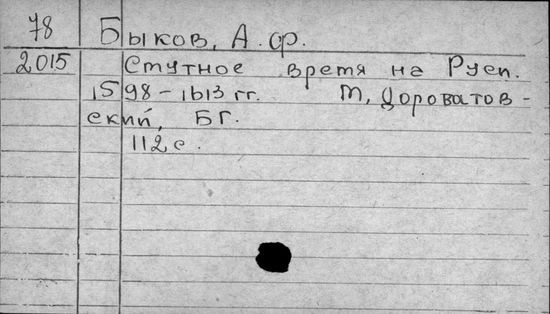 78 Быков, А.Ф.
2015 Смутное время на Руси.
1598-1613 гг. М, Дороватов-
ский, БГ.
112 с.